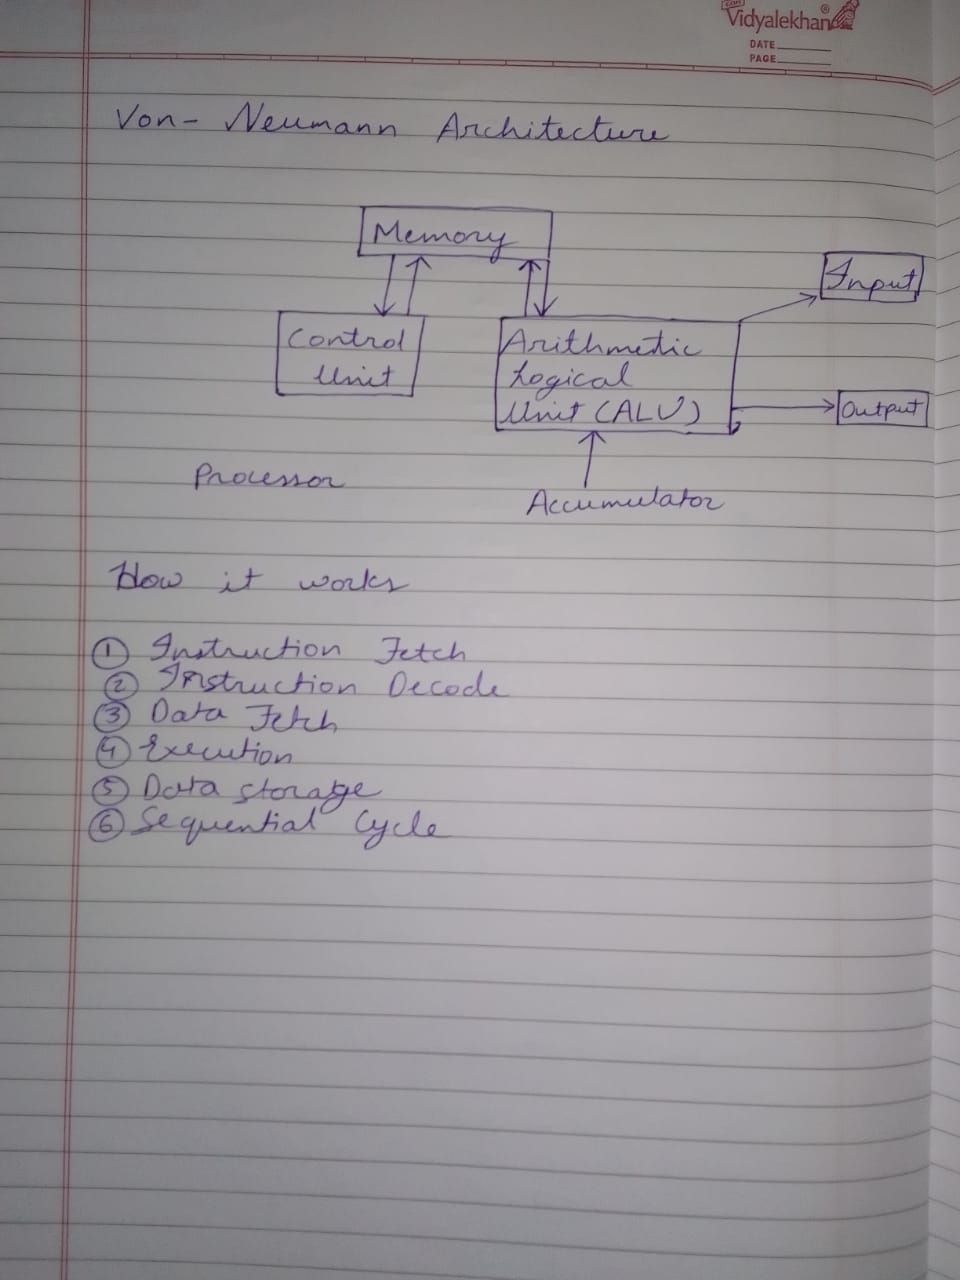 Vidyalekhan
DATE
PAGE
Von- Neumann Architecture
Memory
Input
Control
Unit
Arithmetic
Logical
Unit (ALU)
Output
Processor
Accumulator
How it works
① Instruction Fetch
② Instruction Decode
③ Data Fetch
④ Execution
⑤ Data storage
⑥ Sequential Cycle